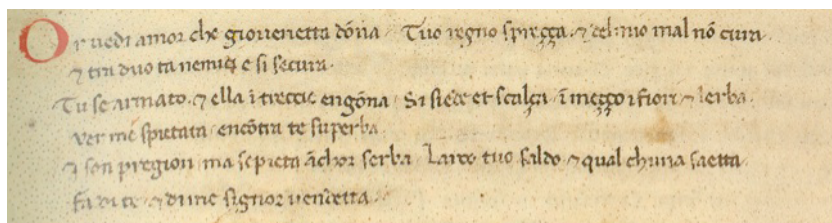 Or vedi amor che giovenetta dōna Tuo regno spreçça. ⁊ del mio mal nō cura
⁊ tra duo ta nemici e si secura.
Tu se armato. ⁊ ella ī treccie engōna Si siede et scalça ī meçço i fiori ⁊ lerba
ver me spietata encōtra te superba
I son pregion ma se pieta āchor serba Larco tuo saldo ⁊ qual chuna saetta
fa di te. ⁊ di me signor vendetta.